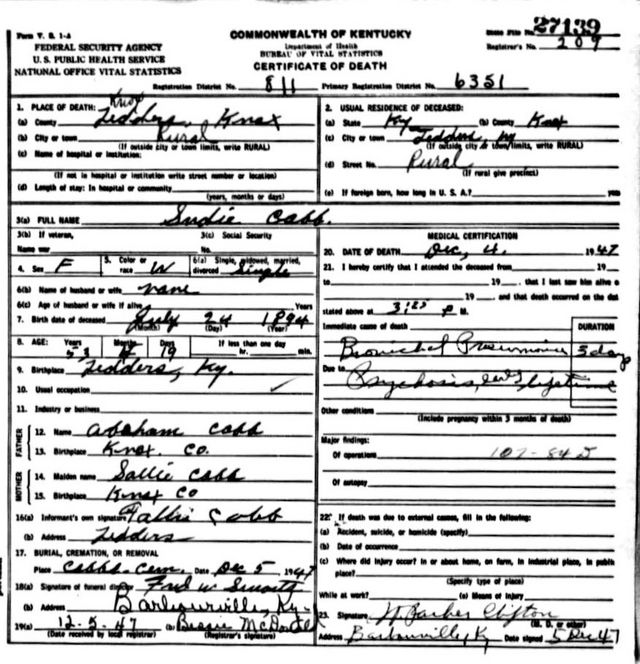 Form V. S. 1-A
FEDERAL SECURITY AGENCY
U. S. PUBLIC HEALTH SERVICE
NATIONAL OFFICE VITAL STATISTICS
COMMONWEALTH OF KENTUCKY
Department of Health
BUREAU OF VITAL STATISTICS
CERTIFICATE OF DEATH
State File No. 27139
Registrar's No. 209
Registration District No. 811 Primary Registration District No. 6351
1. PLACE OF DEATH: Knox
(a) County Tedders, Knox
(b) City or town Rural
(If outside city or town limits, write RURAL)
(c) Name of hospital or institution:
(If not in hospital or institution write street number or location)
(d) Length of stay: In hospital or community
(years, months or days)
2. USUAL RESIDENCE OF DECEASED:
(a) State Ky (b) County Knox
(c) City or town Tedders, Ky
(If outside city or town limits, write RURAL)
(d) Street No. Rural
(If rural give precinct)
(e) If foreign born, how long in U. S. A.? years
3(a) FULL NAME Sudie Cobb.
3(b) If veteran, 3(c) Social Security
Name war No.
4. Sex F 5. Color or race W 6(a) Single, widowed, married, divorced Single
6(b) Name of husband or wife none
6(c) Age of husband or wife if alive Years
7. Birth date of deceased July 24 1894
(Month) (Day) (Year)
8. AGE: Years Months Days If less than one day
53 4 19 hr. min.
9. Birthplace Tedders, Ky.
10. Usual occupation
11. Industry or business
FATHER
12. Name Abaham Cobb
13. Birthplace Knox. Co.
MOTHER
14. Maiden name Sallie Cobb
15. Birthplace Knox Co
16(a) Informant's own signature Cobb
(b) Address Tedders
17. BURIAL, CREMATION, OR REMOVAL
Place Cobbs. Cem. Date Dec 5 1947
18(a) Signature of funeral director Fred W Smith
(b) Address Barbourville, Ky
19(a) 12-5-47 (b) Bessie McDonald
(Date received by local registrar) (Registrar's signature)
MEDICAL CERTIFICATION
20. DATE OF DEATH Dec, 4. 1947
21. I hereby certify that I attended the deceased from 19
to 19 that I last saw him alive o
19 and that death occurred on the dat
stated above at P M.
Immediate cause of death DURATION
Bronichel Pneumonia 3 days
Due to Psychosis, lifetime
Other conditions
(Include pregnancy within 3 months of death)
Major findings:
Of operations 107-84D
Of autopsy
22. If death was due to external causes, fill in the following:
(a) Accident, suicide, or homicide (specify)
(b) Date of occurrence
(c) Where did injury occur? in or about home, on farm, in industrial place, in public
place?
(Specify type of place)
While at work? (e) Means of injury
23. Signature W Barber Clifton
(M. D. or other)
Address Barbourville, Ky Date signed 5 Dec 47